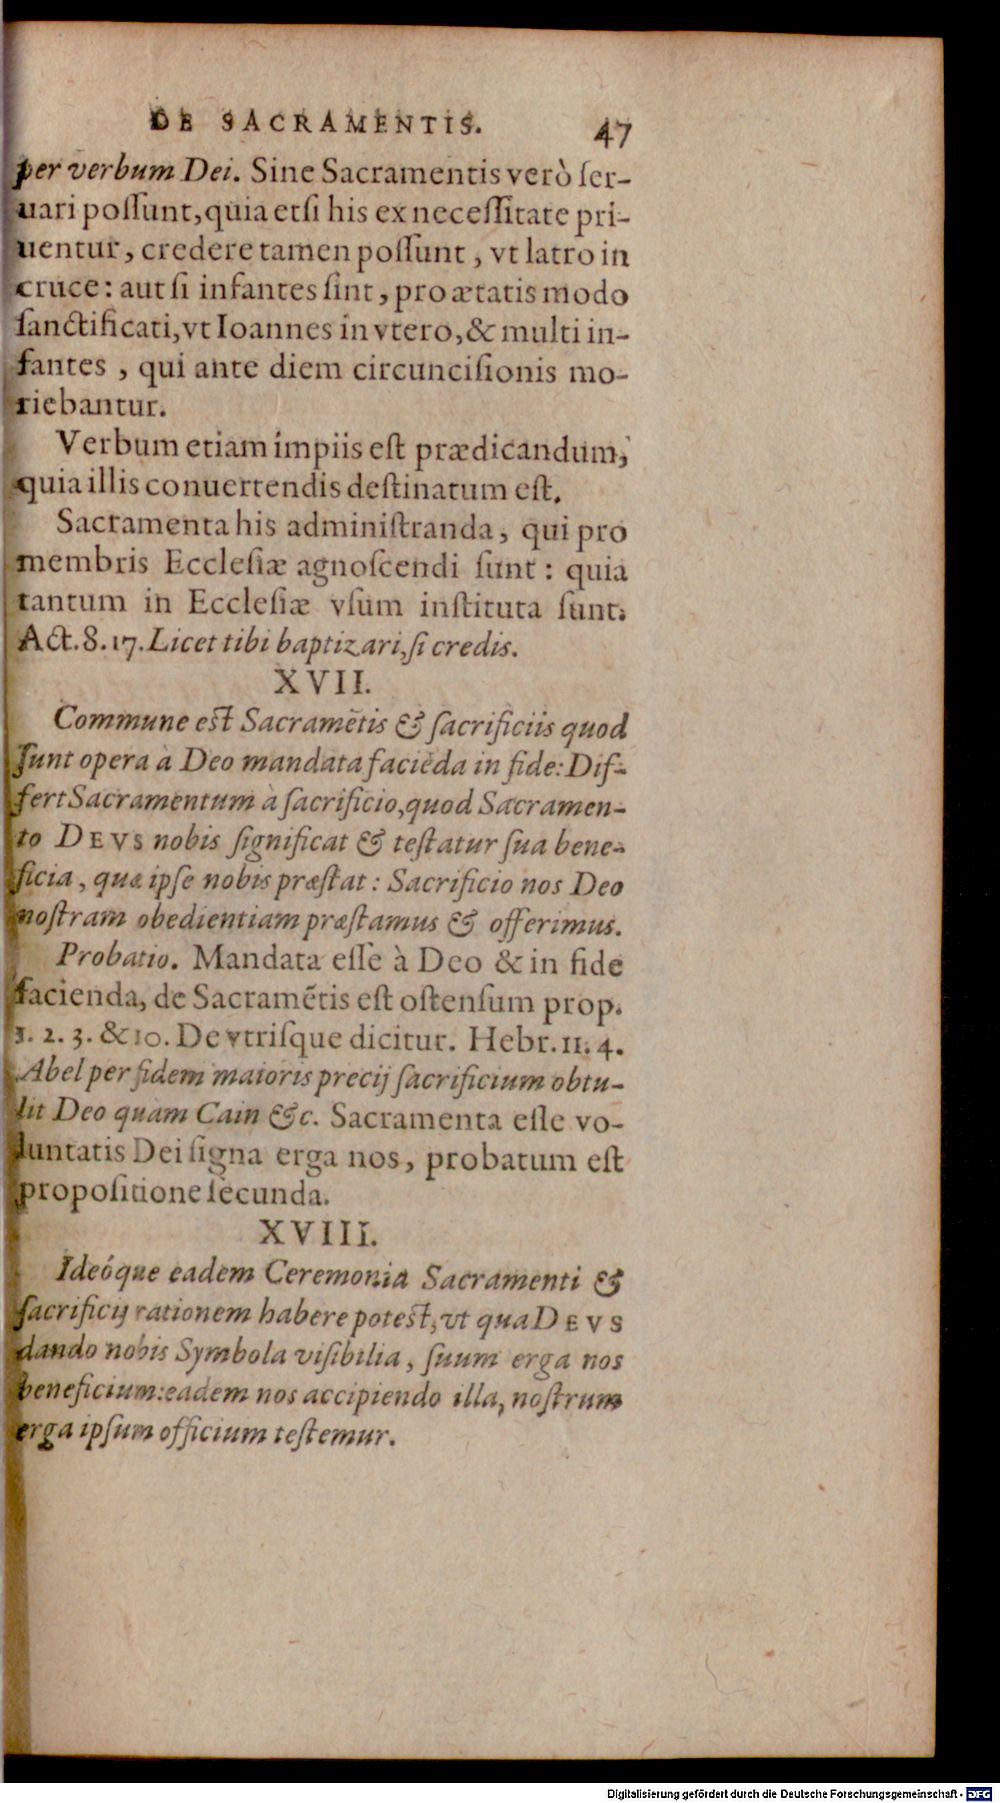 DE SACRAMENTIS. 47
per verbum Dei. Sine Sacramentis verò ſer-
uari poſſunt, quia etſi his ex neceſſitate pri-
uentur, credere tamen poſſunt, vt latro in
cruce: aut ſi infantes ſint, pro ætatis modo
ſanctificati, vt Ioannes in vtero, & multi in-
fantes, qui ante diem circunciſionis mo-
riebantur.
Verbum etiam impiis eſt prædicandum,
quia illis conuertendis deſtinatum eſt.
Sacramenta his adminiſtranda, qui pro
membris Eccleſiæ agnoſcendi ſunt: quia
tantum in Eccleſiæ vſum inſtituta ſunt.
Act. 8. 17. Licet tibi baptizari, ſi credis.
XVII.
Commune eſt Sacramẽtis & ſacrificiis quod
ſunt opera à Deo mandata faciẽda in fide: Dif-
fert Sacramentum à ſacrificio, quod Sacramen-
to DEVS nobis ſignificat & teſtatur ſua bene-
ficia, quæ ipſe nobis præſtat: Sacrificio nos Deo
noſtram obedientiam præſtamus & offerimus.
Probatio. Mandata eſſe à Deo & in fide
facienda, de Sacramẽtis eſt oſtenſum prop.
1. 2. 3. & 10. De vtriſque dicitur. Hebr. 11. 4.
Abel per fidem maioris precij ſacrificium obtu-
lit Deo quàm Cain &c. Sacramenta eſſe vo-
luntatis Dei ſigna erga nos, probatum eſt
propoſitione ſecunda.
XVIII.
Ideóque eadem Ceremonia Sacramenti &
ſacrificij rationem habere poteſt, vt qua DEVS
dando nobis Symbola viſibilia, ſuum erga nos
beneficium: eadem nos accipiendo illa, noſtrum
erga ipſum officium teſtemur.
Digitalisierung gefördert durch die Deutsche Forschungsgemeinschaft - DFG